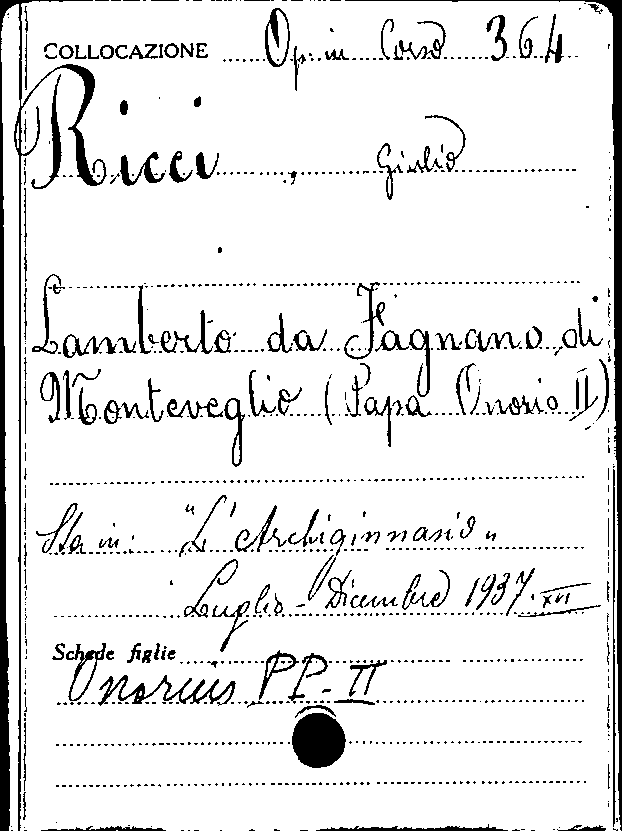 COLLOCAZIONE Op. in Corso 364
Ricci, Giulio
Lamberto da Fagnano di
Monteveglio (Papa Onorio II)
Sta in: "L'Archiginnasio"
Luglio - Dicembre 1937. XVI
Schede figlie
Onorius PP. II